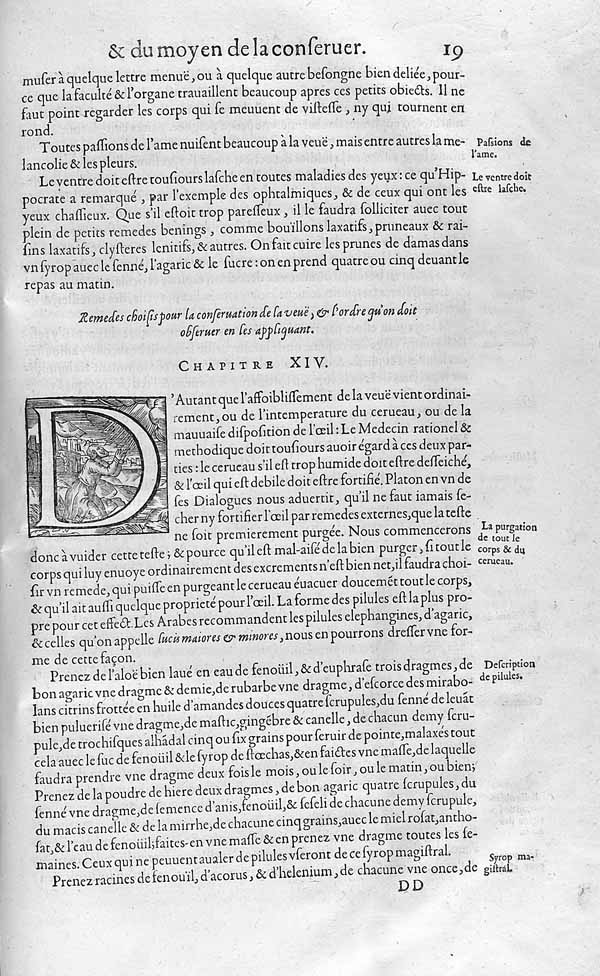 & du moyen de la conſeruer. 19
muſer à quelque lettre menuë, ou à quelque autre beſongne bien deliée, pour-
ce que la faculté & l'organe trauaillent beaucoup apres ces petits obiects. Il ne
faut point regarder les corps qui ſe meuuent de viſteſſe, ny qui tournent en
rond.
Toutes paſſions de l'ame nuiſent beaucoup à la veuë, mais entre autres la me-
lancolie & les pleurs.
Paſsions de
l'ame.
Le ventre doit eſtre touſiours laſche en toutes maladies des yeux: ce qu'Hip-
pocrate a remarqué, par l'exemple des ophtalmiques, & de ceux qui ont les
yeux chaſſieux. Que s'il eſtoit trop pareſſeux, il le faudra ſolliciter auec tout
plein de petits remedes benings, comme bouïllons laxatifs, pruneaux & rai-
ſins laxatifs, clyſteres lenitifs, & autres. On fait cuire les prunes de damas dans
vn ſyrop auec le ſenné, l'agaric & le ſucre: on en prend quatre ou cinq deuant le
repas au matin.
Le ventre doit
eſtre laſche.
Remedes choiſis pour la conſeruation de la veuë, & l'ordre qu'on doit
obſeruer en les appliquant.
CHAPITRE XIV.
D'Autant que l'affoibliſſement de la veuë vient ordinai-
rement, ou de l'intemperature du cerueau, ou de la
mauuaiſe diſpoſition de l'œil: Le Medecin rationel &
methodique doit touſiours auoir égard à ces deux par-
ties: le cerueau s'il eſt trop humide doit eſtre deſſeiché,
& l'œil qui eſt debile doit eſtre fortifié. Platon en vn de
ſes Dialogues nous aduertit, qu'il ne faut iamais ſe-
cher ny fortifier l'œil par remedes externes, que la teſte
ne ſoit premierement purgée. Nous commencerons
donc à vuider cette teſte; & pource qu'il eſt mal-aiſé de la bien purger, ſi tout le
corps qui luy enuoye ordinairement des excrements n'eſt bien net, il faudra choi-
ſir vn remede, qui puiſſe en purgeant le cerueau éuacuer doucemēt tout le corps,
& qu'il ait auſſi quelque proprieté pour l'œil. La forme des pilules eſt la plus pro-
pre pour cet effect. Les Arabes recommandent les pilules elephangines, d'agaric,
& celles qu'on appelle lucis maiores & minores, nous en pourrons dreſſer vne for-
me de cette façon.
La purgation
de tout le
corps & du
cerueau.
Prenez de l'aloë bien laué en eau de fenoüil, & d'euphraſe trois dragmes, de
bon agaric vne dragme & demie, de rubarbe vne dragme, d'eſcorce des mirabo-
lans citrins frottée en huile d'amandes douces quatre ſcrupules, du ſenné de leuāt
bien pulueriſé vne dragme, de maſtic, gingēbre & canelle, de chacun demy ſcru-
pule, de trochiſques alhādal cinq ou ſix grains pour ſeruir de pointe, malaxés tout
cela auec le ſuc de fenoüil & le ſyrop de ſtœchas, & en faictes vne maſſe, de laquelle
faudra prendre vne dragme deux fois le mois, ou le ſoir, ou le matin, ou bien;
Prenez de la poudre de hiere deux dragmes, de bon agaric quatre ſcrupules, du
ſenné vne dragme, de ſemence d'anis, fenoüil, & ſeſeli de chacune demy ſcrupule,
du macis canelle & de la mirrhe, de chacune cinq grains, auec le miel roſat, antho-
ſat, & l'eau de fenoüil; faites-en vne maſſe & en prenez vne dragme toutes les ſe-
maines. Ceux qui ne peuuent aualer de pilules vſeront de ce ſyrop magiſtral.
Deſcription
de pilules.
Prenez racines de fenoüil, d'acorus, & d'helenium, de chacune vne once, de
Syrop ma-
giſtral.
DD